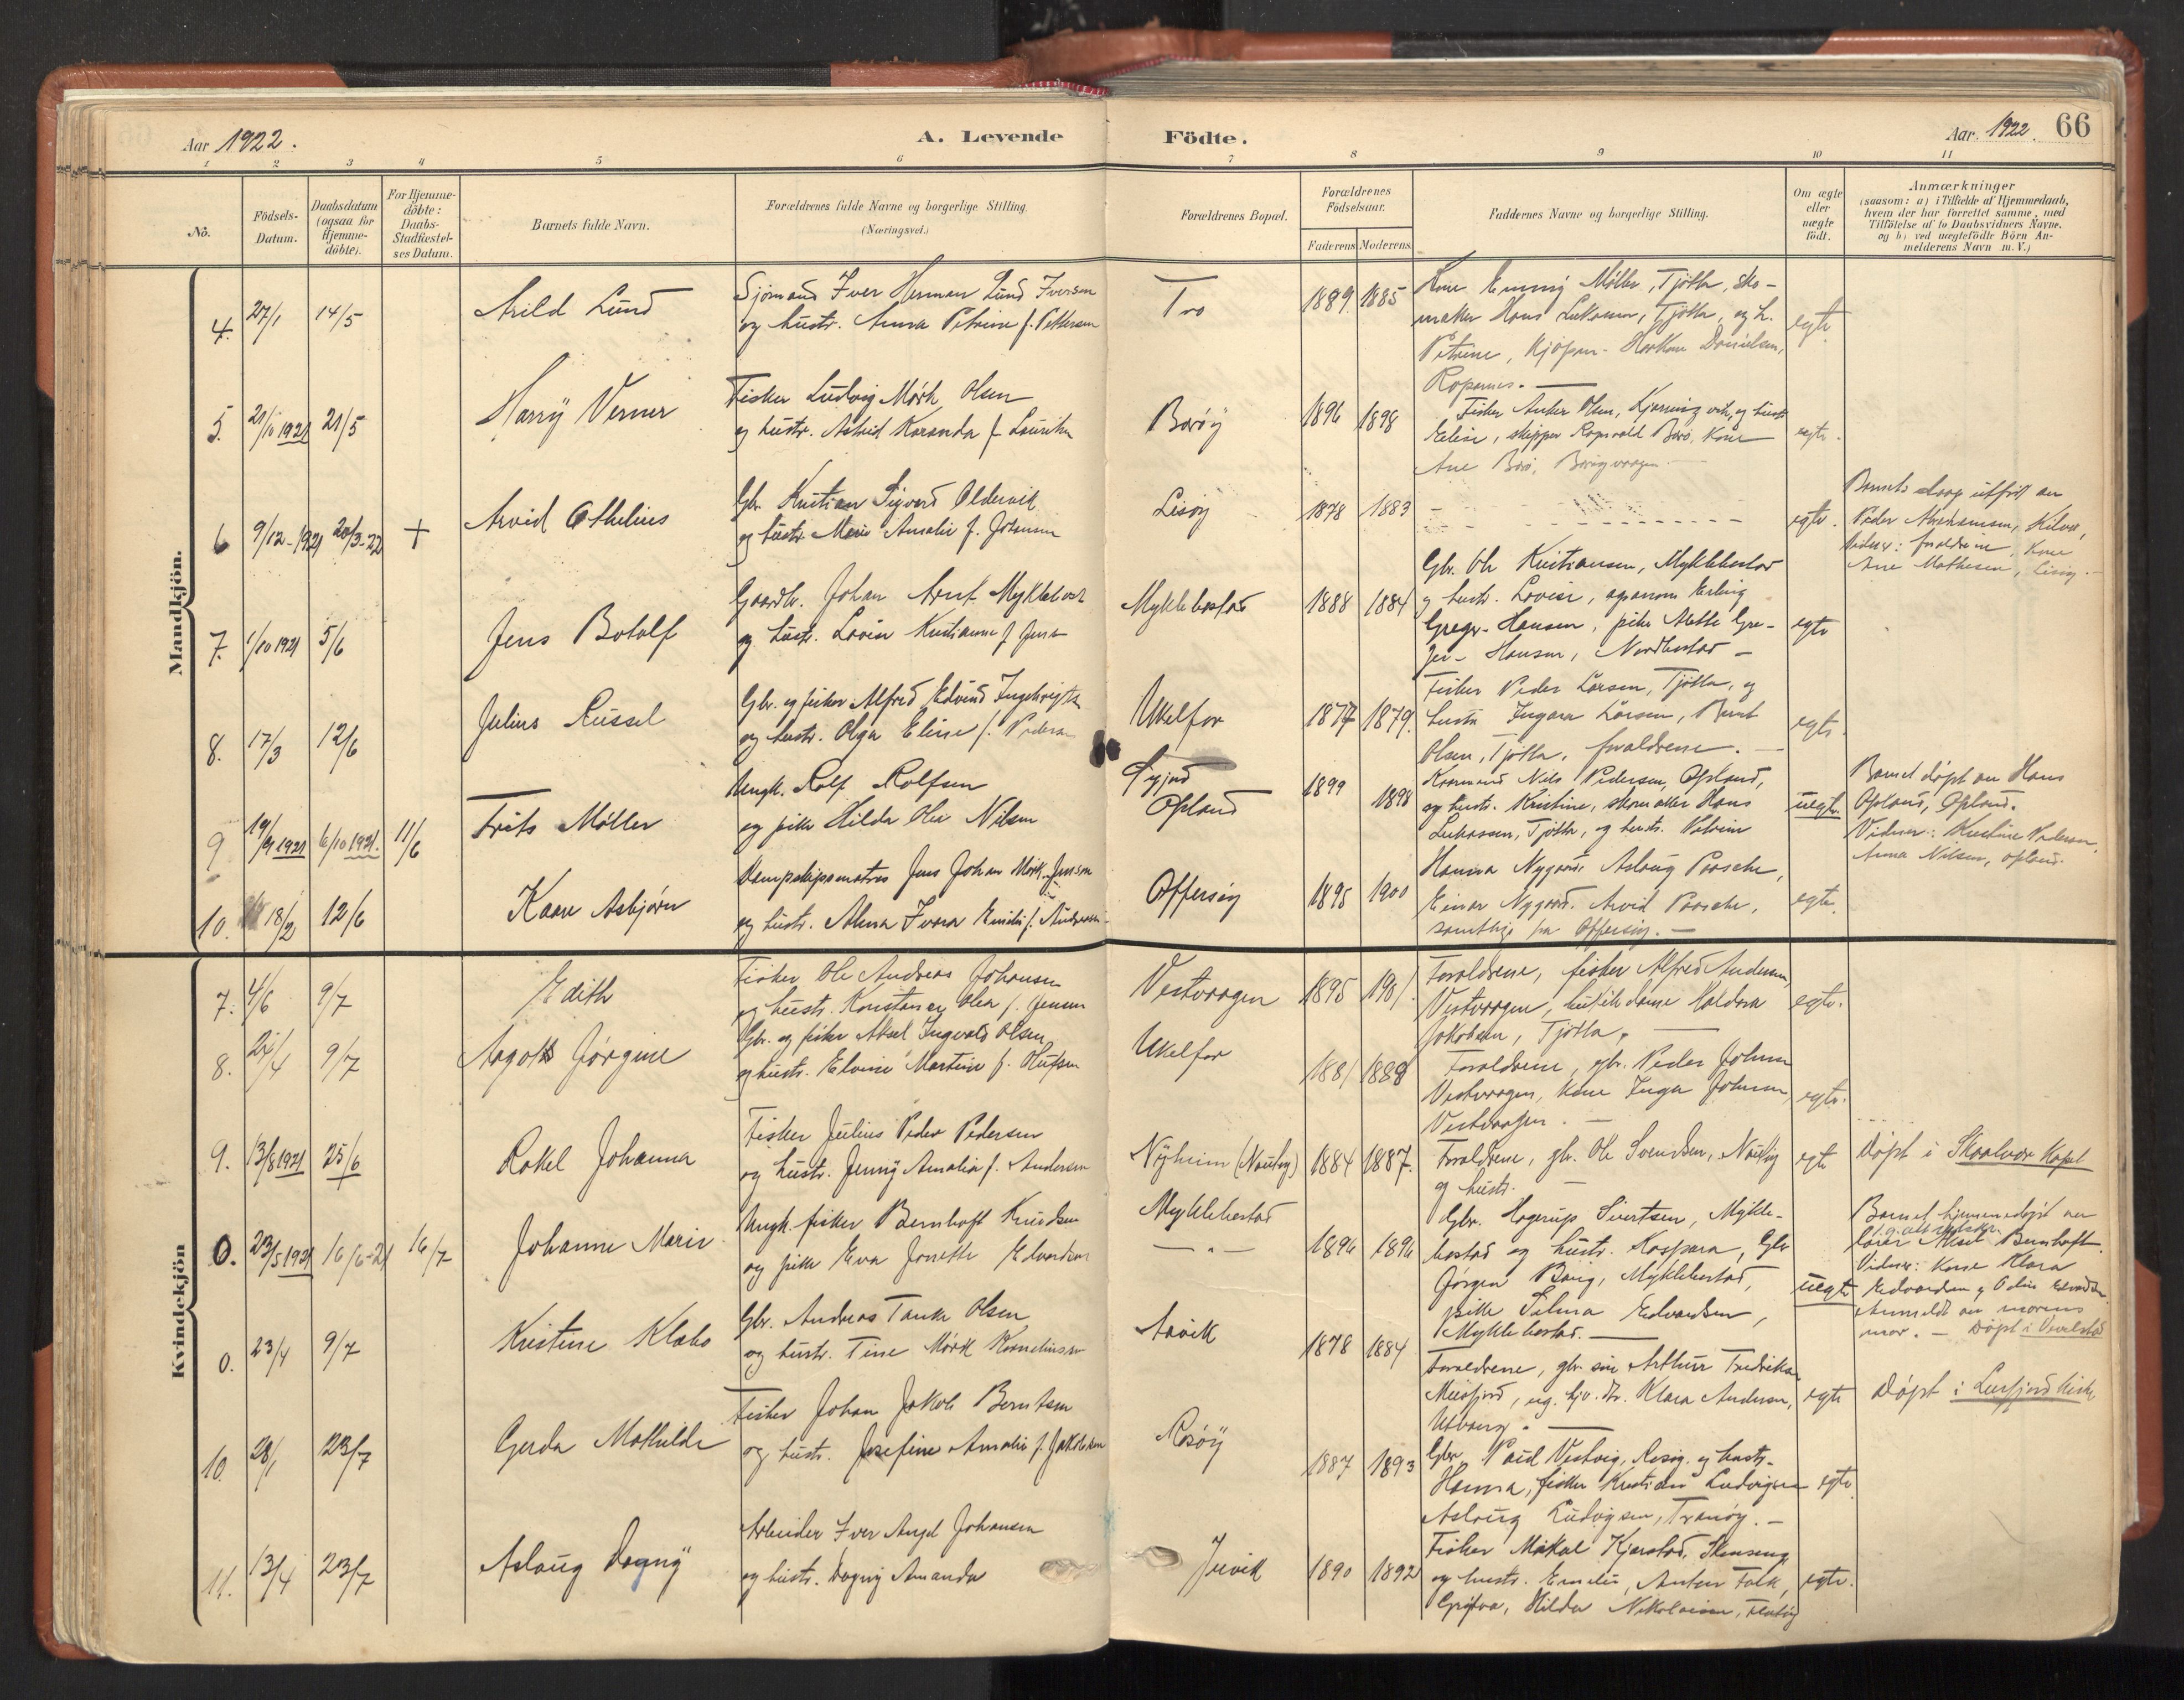 Aar 1922.
A. Levende Födte.
Aar 1922. 66
1 2 3 4 5 6 7 8 9 10 11
No.
Födsels-Datum.
Daabsdatum (ogsaa for Hjemme-döbte).
For Hjemme-döbte: Daabs-Stadfæstel-ses Datum.
Barnets fulde Navn.
Forældrenes fulde Navne og borgerlige Stilling. (Næringsvei.)
Forældrenes Bopæl.
Forældrenes Födselsaar.
Faderens Moderens
Faddernes Navne og borgerlige Stilling.
Om ægte eller uægte födt.
Anmærkninger
(saasom: a) i Tilfælde af Hjemmedaab,
hvem der har forrettet samme, med
Tilföielse af to Daabsvidners Navne.
og b) ved uægtefödte Börn An-
melderens Navn m. V.)
Mandkjön.
4. 27/1 14/5
Arild Lund
Sjømand Iver Herman Lund Iversen
og hustr. Anna Petrine f. Pettersen
Tro
1889 1885
Kone Emmy Møller, Tjøtta, sko-
maker Hans Lukassen, Tjøtta, og h.
Petrine, Haakon Danielsen,
egte
5. 21/11 1921 21/5
Harry Verner
Fisker Ludvig Mørk Olsen
og hustr. Astrid f.
Borøy
1896 1898
Fisker Anker Olsen, og hustr
Elise, skipper Ragnvald Borø, Kone
Ane Borø,
egte.
6 9/12-1921 20/3-22 +
Arvid Othelius
Gbr. Kristian Sigvard Oldervik
og hustr. Marie Amalie f. Johansen
Lisøy
1878 1883
egte.
Barnets daap utført av
Peder Abrahamsen, Kilvær,
Vidner: forældrene, Kone
Ane Mathesen, Lisøy.-
7. 1/10 1921 5/6
Jens Botolf
Gaardbr. Johan Arnt Myklebost
og hustr. Lovise Kristianne f. Jens
Myklebostad
1888 1884
Gbr. Ole Kristiansen, Myklebostad
og hustr. Lovise, Erling
Greger Hansen, pike Mette Gre-
ger- Hansen, Nordbostad -
egte
8. 17/3 12/6
Julius Russel
Gbr. og fisker Alfred Edvind Ingebrigts
og hustr. Olga Elise f. Pedersen
Ukelfor
1877 1879.
Fisker Peder Larsen, Tjøtta, og
hustru Ingara Larsen, Bernt
Olsen, Tjøtta, forældrene. -
egte.
9 19/9 1921 6/10 1921. 11/6
Frits Møller
Ungk. Rolf Rolfsen
og pike Hilda Olea Nilsen
Opland
1899 1898
Nils Pedersen, Opland,
og hustr. Kristine, skomaker Hans
Lukassen, Tjøtta, og hustr. Petrine
uegte.
Barnet døpt av Hans
Opland, Opland.
Vidner: Kristine Pedersen,
Anna Nilsen, Opland.
10. 18/2 12/6
Kaare Asbjørn
Dampskipsmatros Jens Johan Mørk Jensen
og hustr. Alma Ivara Emilie f. Andreassen
Offersøy
1895 1900
Hanna Nygaard, Aslaug Paasche,
Einar Nygaard. Arvid Paasche,
samtlige fra Offersøy. -
egte.
Kvindekjön
7. 4/6 9/7
Edith
Fisker Ole Andreas Johansen
og hustr. Konstanse Olea f. Jensen
Vestvaagen
1895 1901.
Forældrene, fisker Alfred Andersen,
Vestvaagen, butikdame Haldora
Jakobsen, Tjøtta. -
egte.
8. 24/4 9/7
Aagoth Jørgine
Gbr. og fisker Aksel Ingvald Olsen
og hustr. Elvine Martine f. Olufsen
Ukelfor
1881 1888
Forældrene, gbr. Peder Johnsen
Vestvaagen, Kone Inga Johnsen,
Vestvaagen. -
egte.
9. 13/8 1921 25/6
Rakel Johanna
Fisker Julius Peder Pedersen
og hustr. Jenny Amalia f. Andersen
Nyheim (Nautøy)
1884 1887.
Forældrene, gbr. Ole Svendsen, Nautøy
og hustr. -
egte
Døpt i Skaalvær Kapel
0. 23/5 1921 16/6-21 16/7
Johanne Marie
Ungk. fisker Bernhoft Knudsen
og pike Eva Jonette Edvardsen
Myklebostad
- " -
1896 1896
Gbr. Hagerup Sivertsen, Mykle-
bostad og hustr. Kaspara, Gbr
Jørgen Bang, Myklebostad,
pike Selma Edvardsen,
Myklebostad. -
uegte
Barnet hjemmedøpt av
lærer Aksel Bernhoft.
Vidner: Kone Klara
Edvardsen og
Anmeldt av morens
mor. - Døpt i Vevelstad
0. 23/4 9/7
Kristine Klabo
Gbr. Andreas Tank Olsen
og hustr. Tine Mørk Kornelinssen
Aavik
1878 1884
Forældrene, gbr. søn Arthur Fredriksen
Meisfjord, ug. hjv. dtr. Klara Andersen,
egte
Døpt i Leirfjord kirke
10. 28/1 23/7
Gerda Mathilde
Fisker Johan Jakob Berntsen
og hustr. Josefine Amalie f. Jakobsen
Rosøy
1887 1893
Gbr. Paul Vestvig, Rosøy og hustr.
Hanna, fisker Kristian Ludvigsen
Aslaug Ludvigsen, Tranøy. -
egte
11. 13/4 23/7
Aslaug Dagny
Arbeider Iver Angel Johansen
og hustr. Dagny Amanda
Juvik
1890 1892
Fisker Mikal Kjærstad,
og hustr. Emilie, Anton Falk,
Hilda Nikolaisen,
egte.